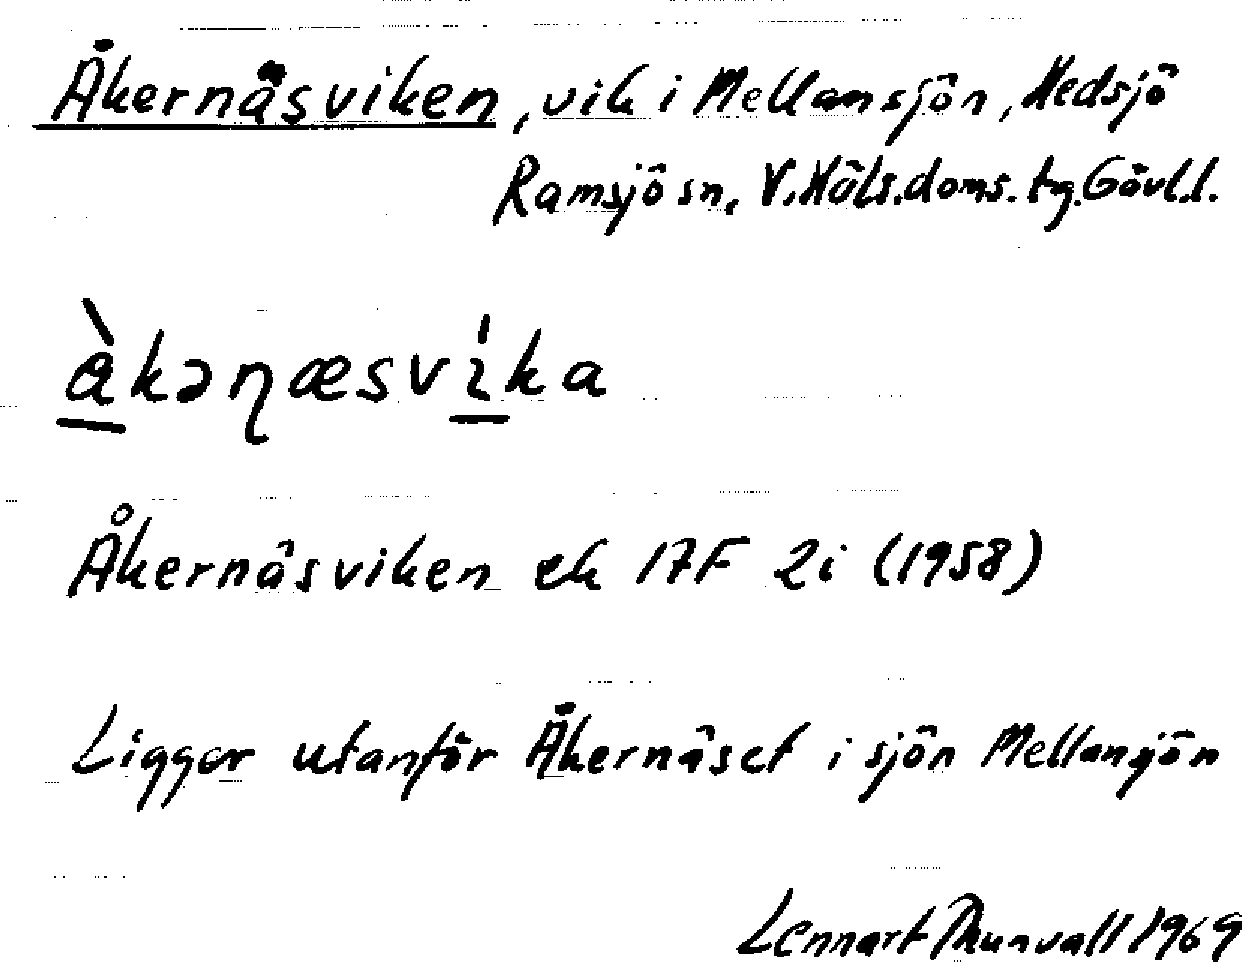 Åkernäsviken, vik i Mellansjön, Hedsjö
Ramsjö sn, V. Häls. doms. tg. Gävl. l.
àkəɳæsvíka
Åkernäsviken ek 17F 2i (1958)
Ligger utanför Åkernäset i sjön Mellansjön
Lennart Thunvall 1969